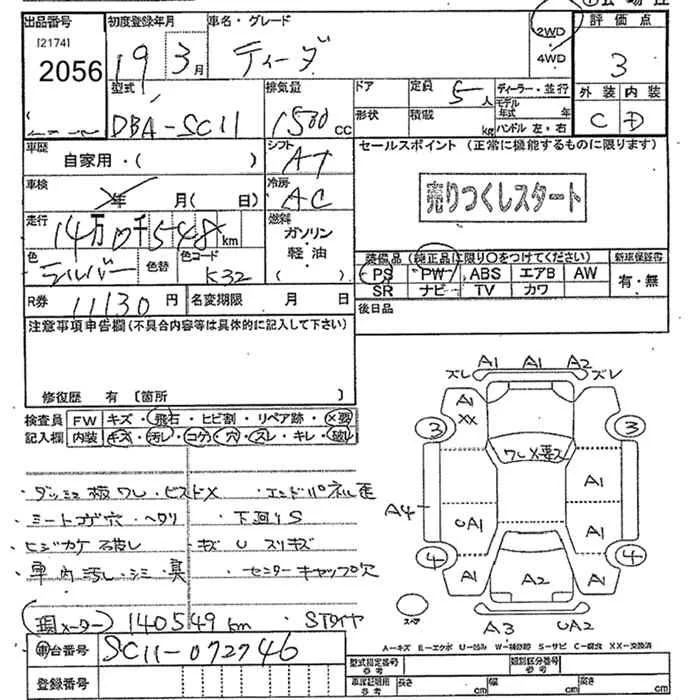 出品番号 初度登録年月 車名・グレード 2WD 評価点
[2174] 4WD
2056 19 3月 ティーダ 3
型式 排気量 ドア 定員 5人 ディーラー・並行 外装 内装
形状 積載 kg モデル年式 年 C D
DBA-SC11 1500 cc ハンドル 左・右
車歴 シフト セールスポイント (正常に機能するものに限ります)
自家用・( ) AT
車検 年 月(日) 冷房 AC 売りつくしスタート
走行 燃料
14万0千548km ガソリン
軽油 装備品(純正品に限り○をつけてください) 新車保証書
色 色替 色コード ( ) PS PW ABS エアB AW 有・無
シルバー K32 SR ナビ TV カワ
R券 11130円 名変期限 月 日 後日品
注意事項申告欄(不具合内容等は具体的に記入して下さい)
修復歴 有 [箇所 ]
検査員 FW キズ・飛石・ヒビ割・リペア跡・X要
記入欄 内装 キズ・汚レ・コゲ・穴・スレ・キレ・破レ
・ダッシュ板ワレ・ビスドX ・エンドパネル歪
・シートコゲ穴・ヘタリ ・下廻りS
ヒジカケ破レ キズ U スリキズ
・車内汚レ・シミ・臭 ・センターキャップ穴
現メーター 140549km ・STタイヤ
車台番号 SC11-072746
登録番号
ズレ A1 A1 A2 ズレ
A1
XX
3 3
ワレX要ス
A1
A4 UA1 A1
4 4
A1 A2 A1
スペア
A3 UA2
A-キズ E-エクボ U-凹み W-補修跡 S-サビ C-腐食 XX-交換済
型式指定番号 参考 類別区分番号 参考
車庫証明用 参考 長さ cm 幅 cm 高さ cm